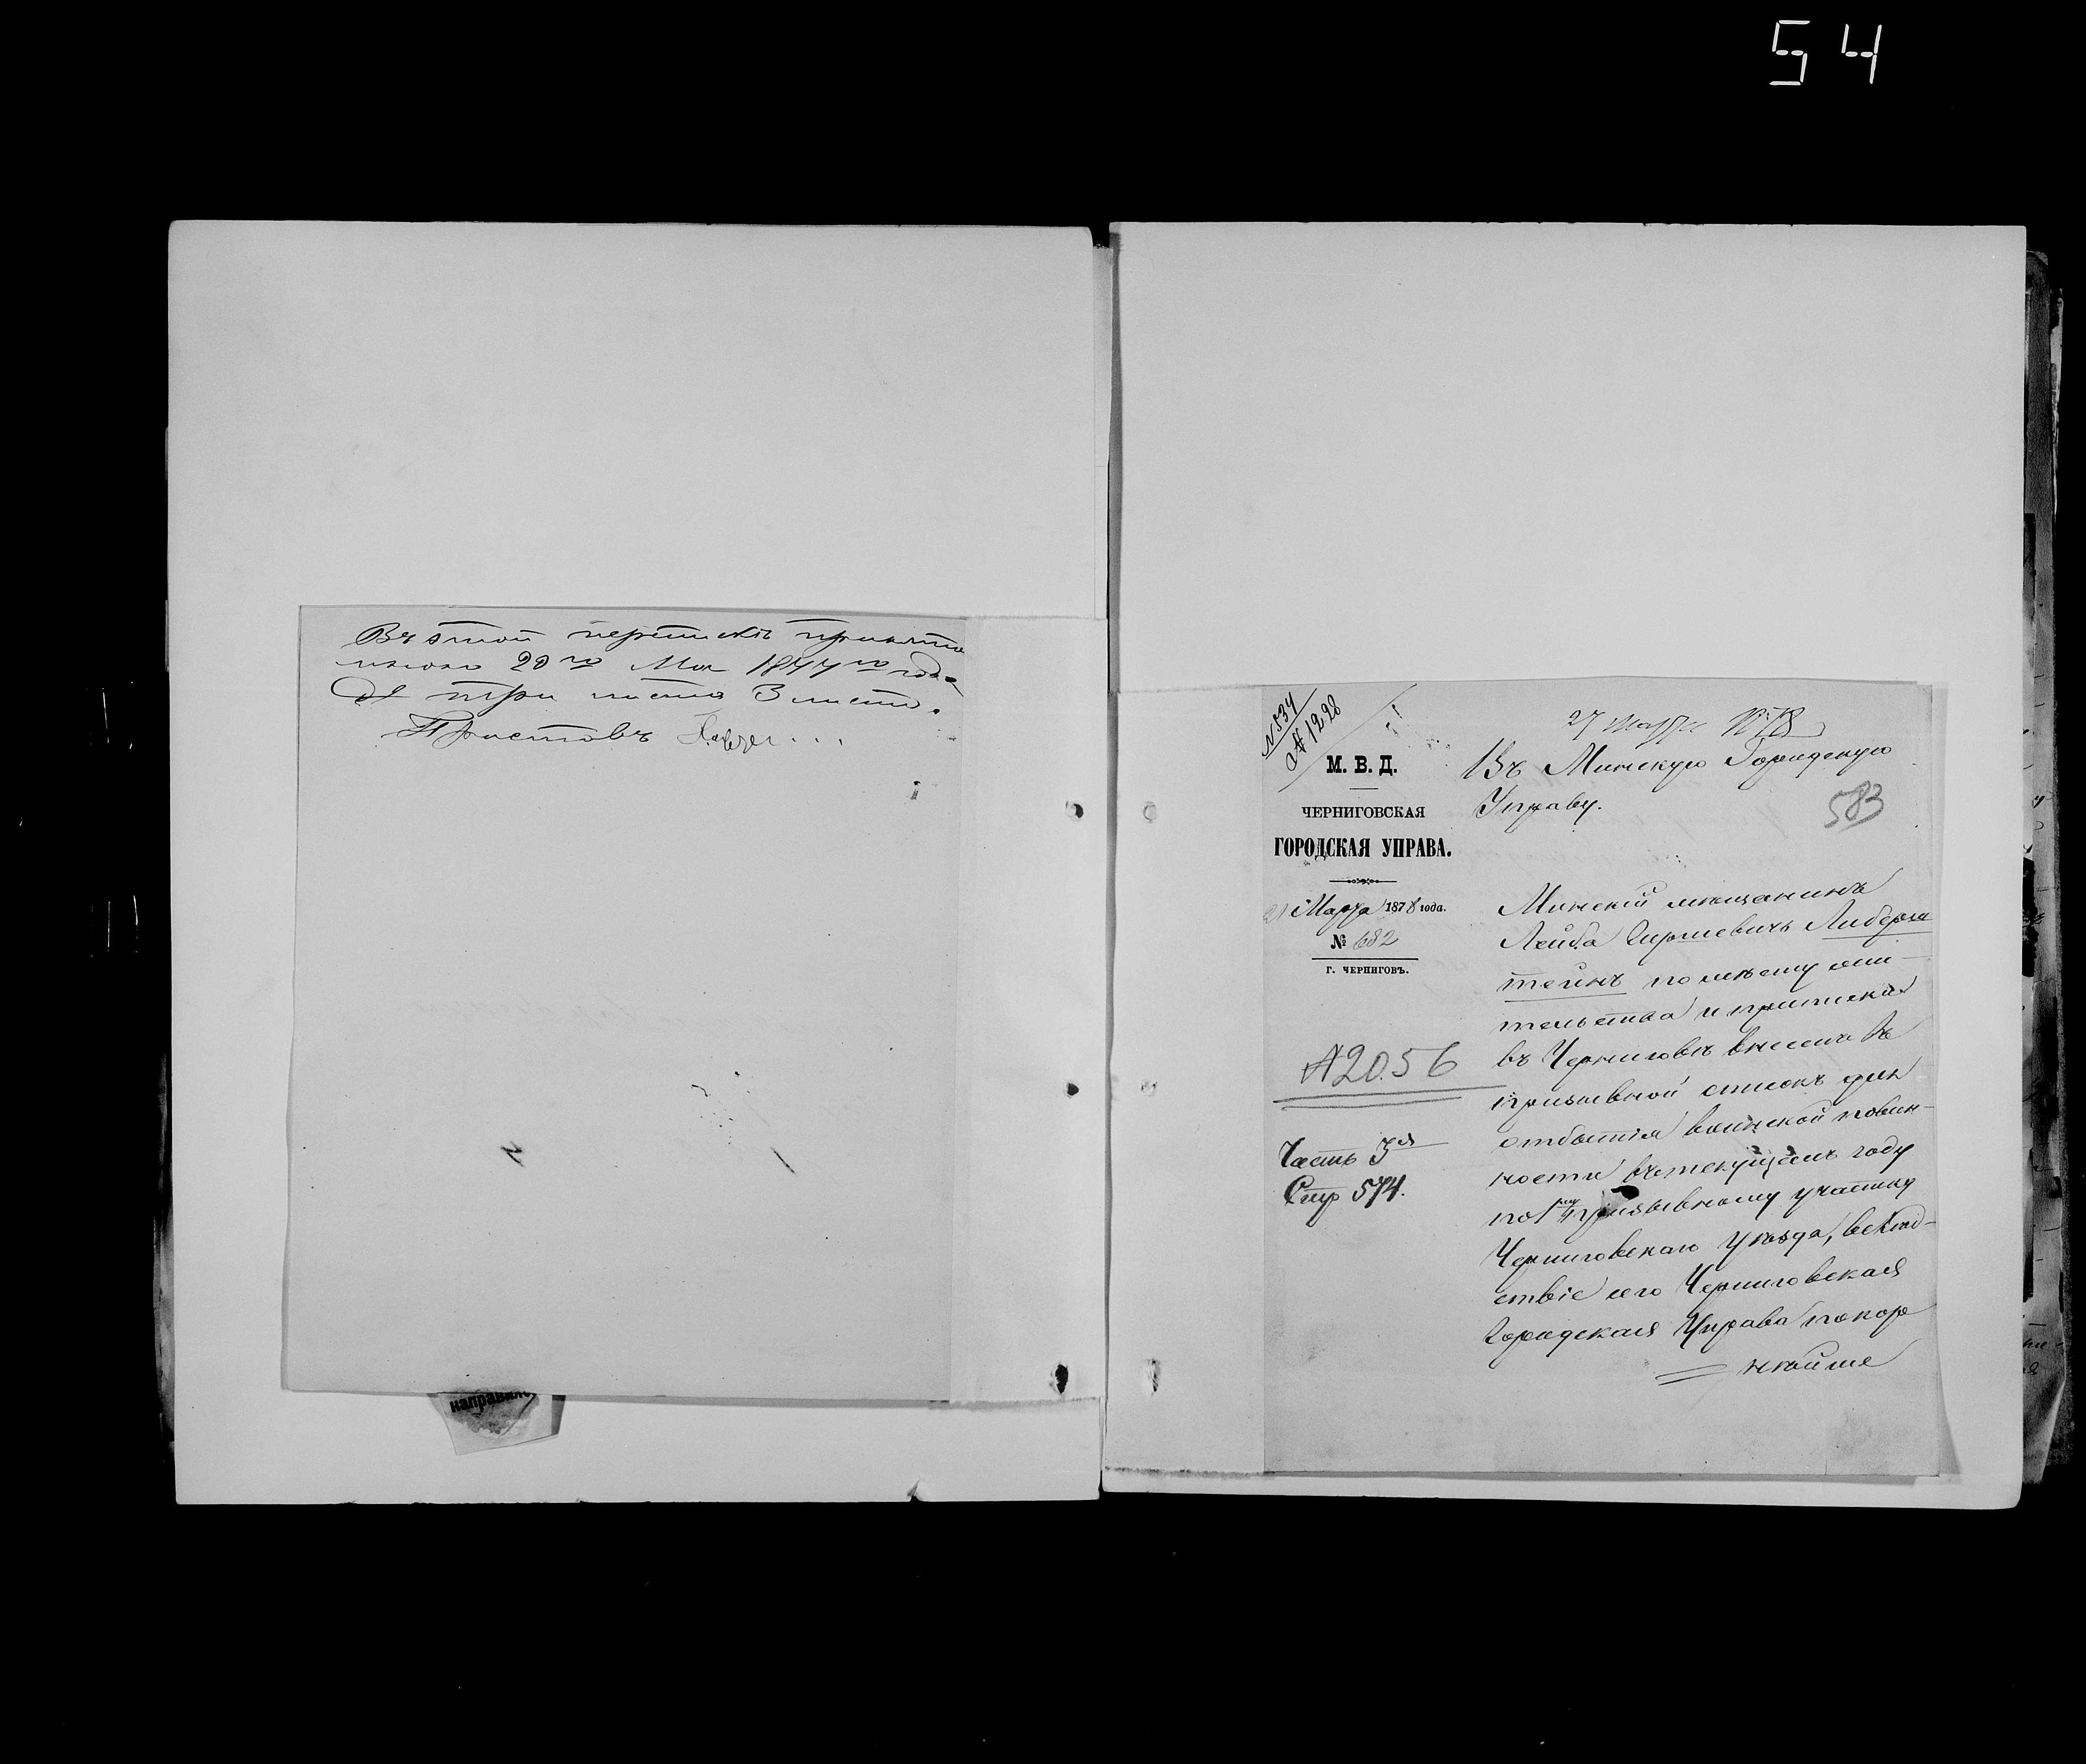 54
Въ этой перепискѣ
20го Мая 1877го года
три листа 3 листа.
Приставъ
направил
№ 534
№ 1228
27 Марта № 78
М. В. Д.
ЧЕРНИГОВСКАЯ
ГОРОДСКАЯ УПРАВА.
21 Марта 1878 года.
№ 682
Г. ЧЕРНИГОВЪ.
№ 2056
Часть 3я
Стр 574.
Въ Минскую Городскую
Управу.
583
Минскій мѣщанинъ
Лейба Гиршевичъ Либерш
тейнъ по мѣсту жи-
тельства и приписки
въ Черниговѣ внесенъ въ
призывной списокъ для
отбытія воинской повин-
ности въ текущемъ году
по 1му призывному участку
Черниговскаго уѣзда, вслѣд-
ствіе сего Черниговская
Городская Управа покор
нѣйше